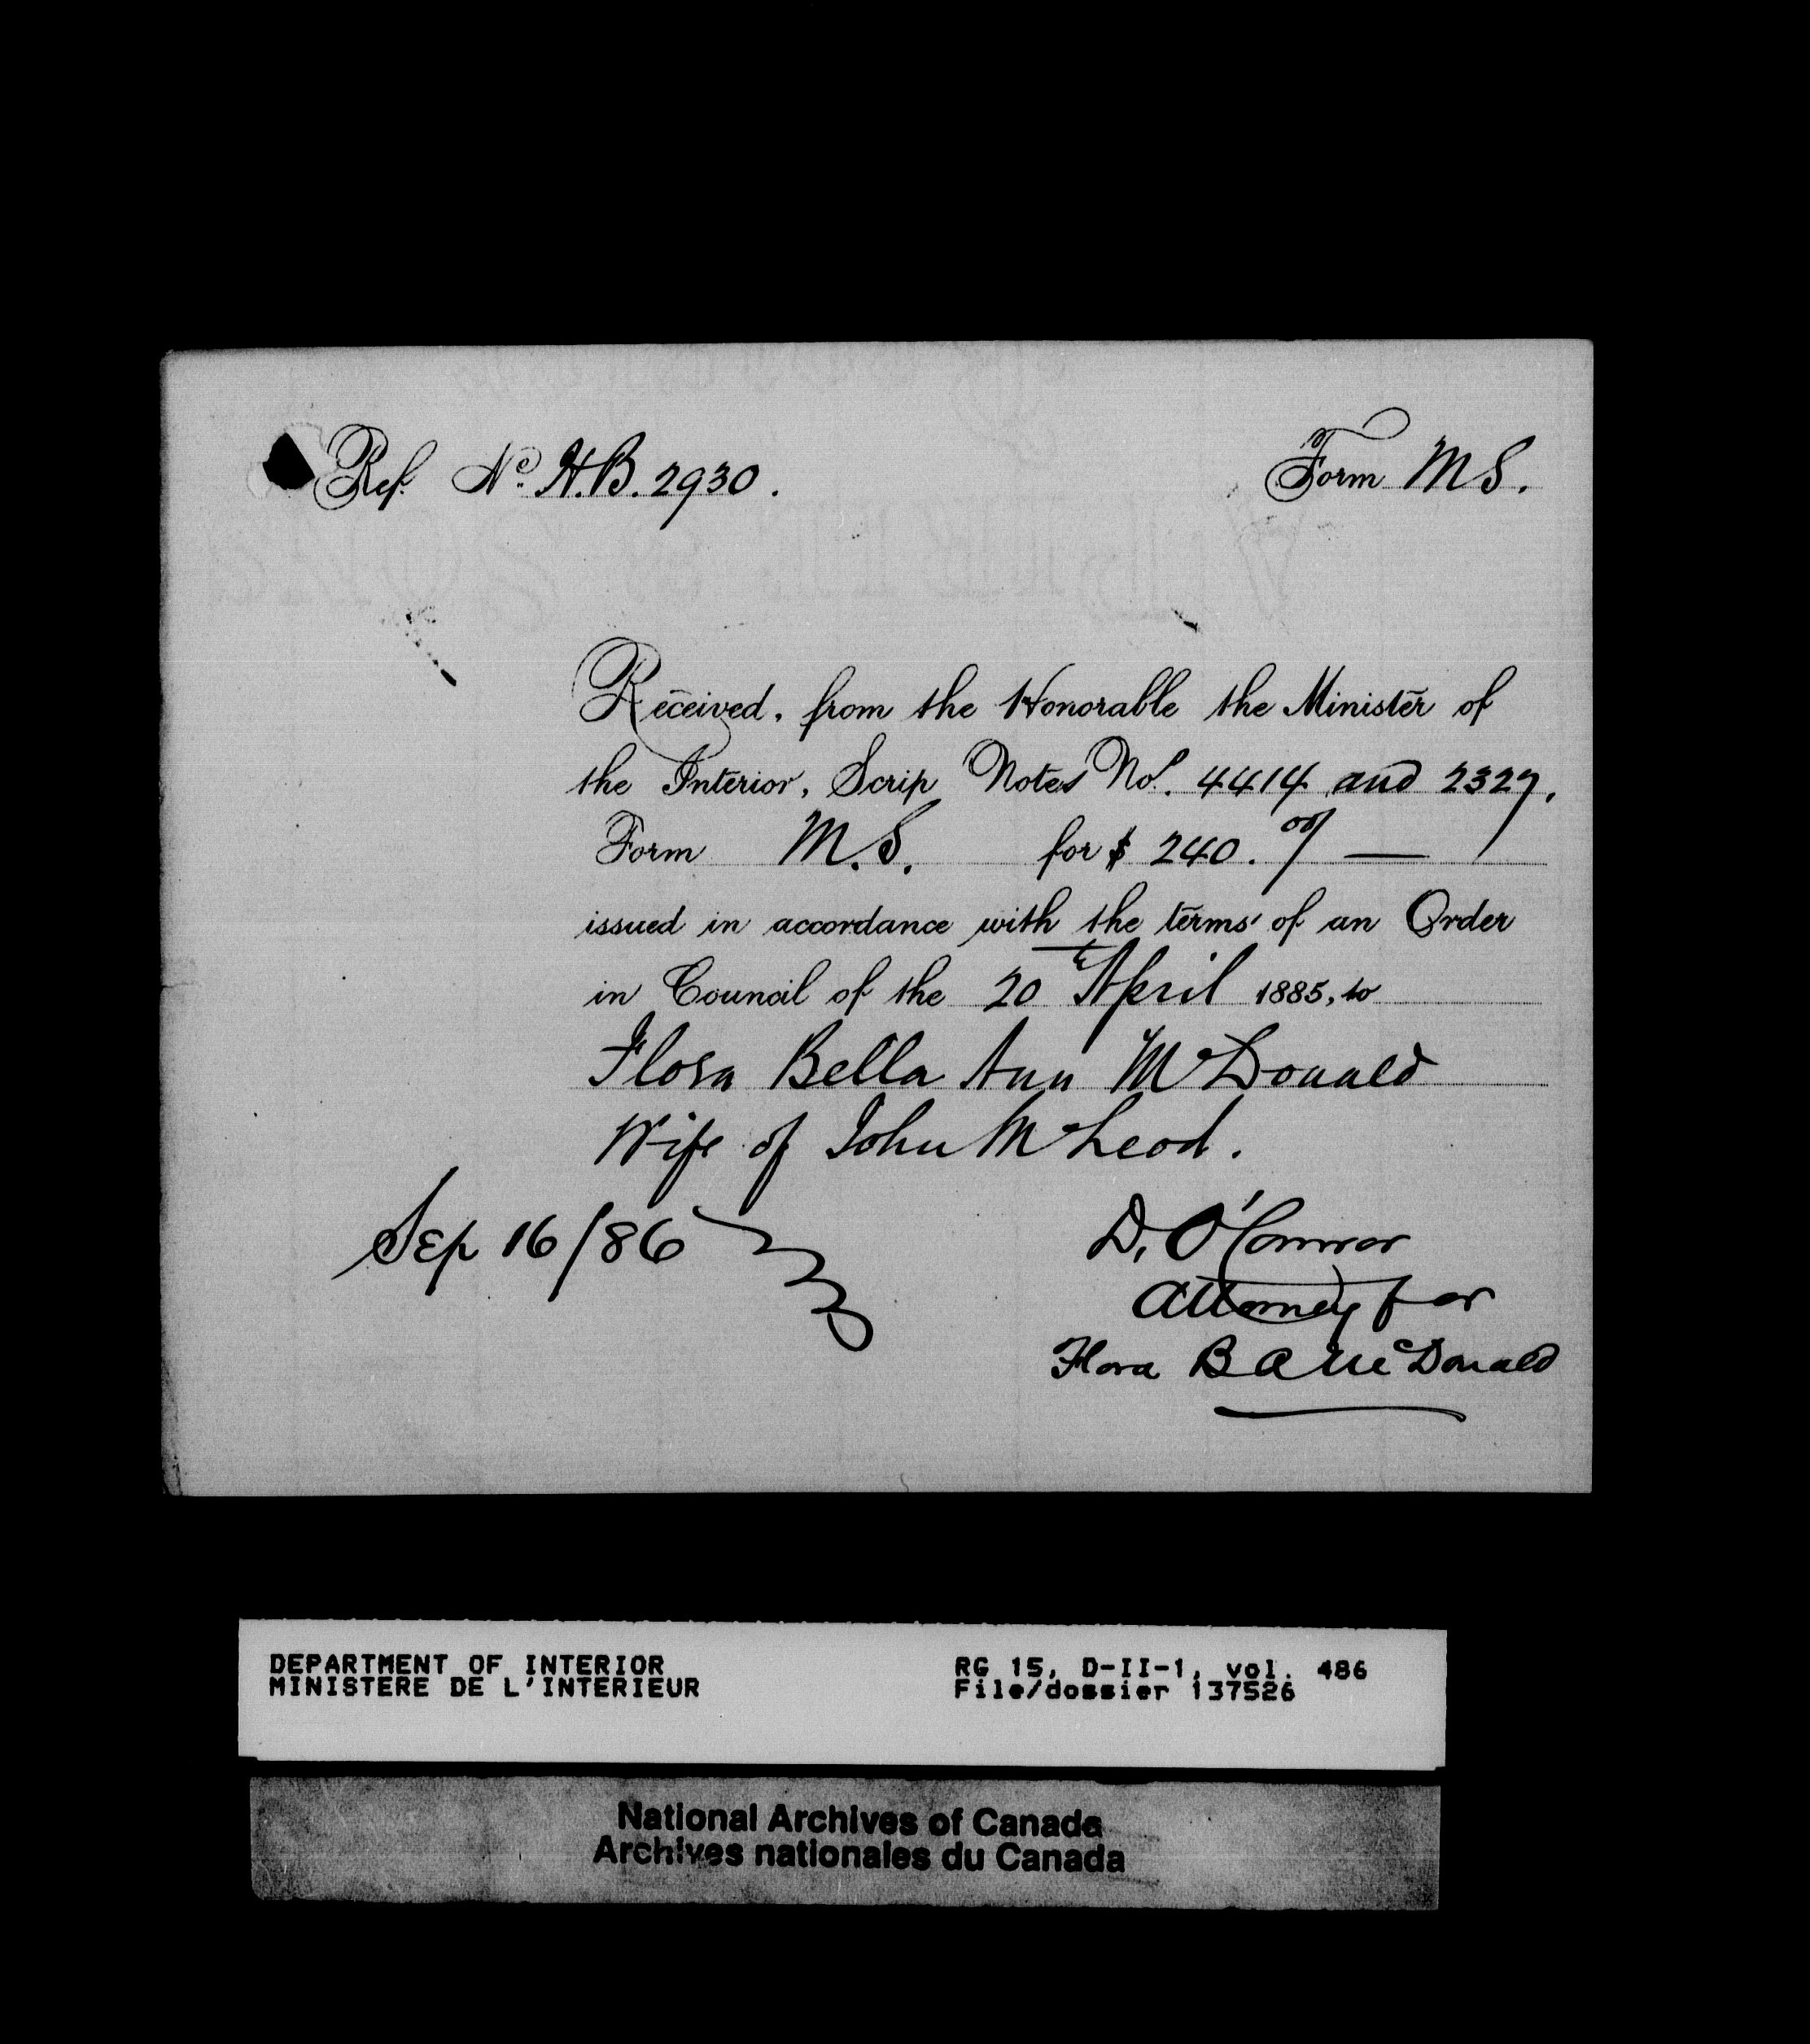 Ref. No. H.B. 2930.
Form M S.
Received, from the Honorable the Minister of
the Interior, Scrip Notes Nos. 4414 and 2327.
Form M.S. for $ 240.00/
issued in accordance with the terms of an Order
in Council of the 20th April 1885, to
Flora Bella Ann McDonald
Wife of John McLeod.
Sep 16/86
D. O'Connor
Attorney for
Flora B A McDonald
DEPARTMENT OF INTERIOR
MINISTERE DE L'INTERIEUR
RG 15, D-II-1, vol. 486
File/dossier 137526
National Archives of Canada
Archives nationales du Canada